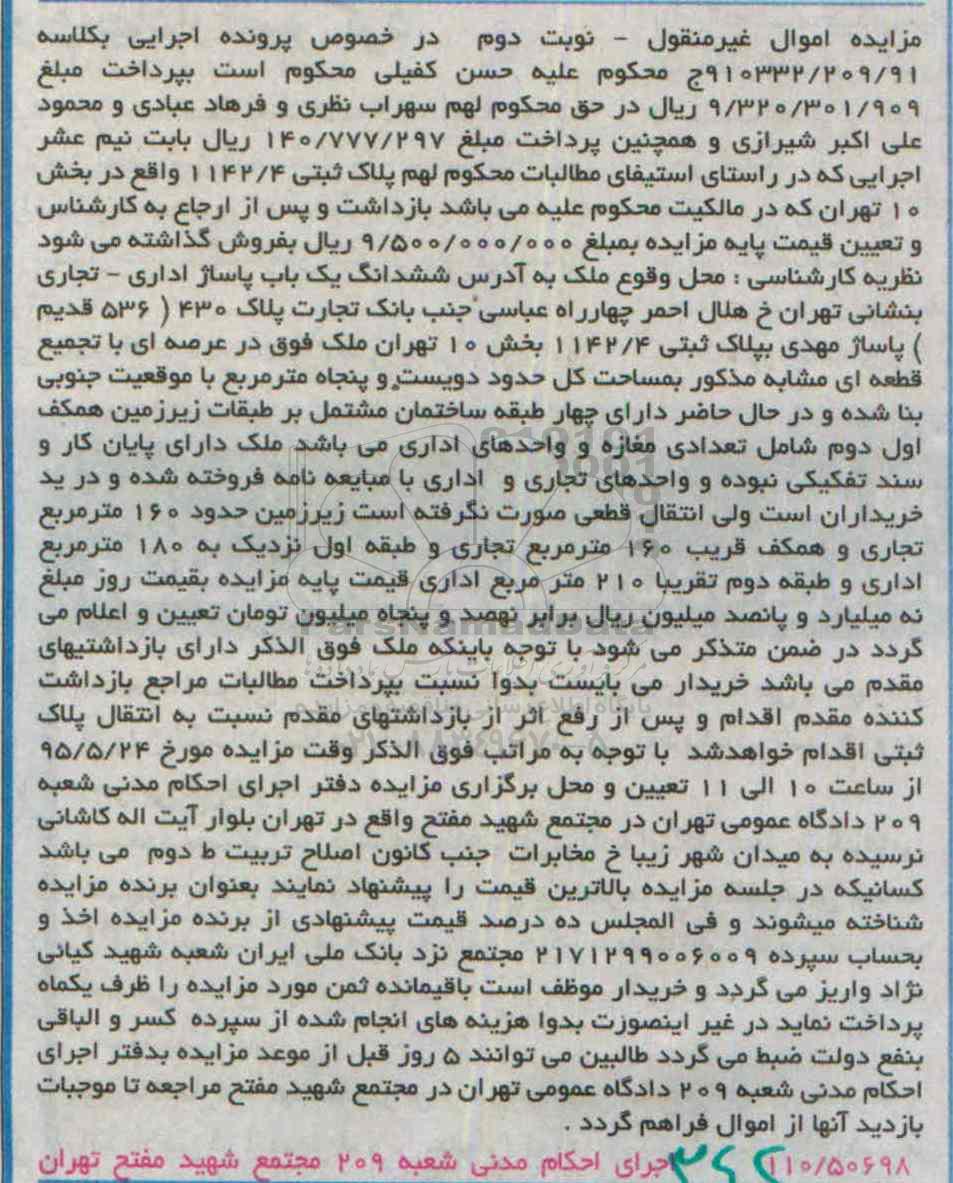 مزایده اموال غیرمنقول - نوبت دوم در خصوص پرونده اجرایی بکلاسه
۹۱۰۳۳۲/۲۰۹/۹۱ج محکوم علیه حسن کفیلی محکوم است بپرداخت مبلغ
۹/۳۲۰/۳۰۱/۹۰۹ ریال در حق محکوم لهم سهراب نظری و فرهاد عبادی و محمود
علی اکبر شیرازی و همچنین پرداخت مبلغ ۱۴۰/۷۷۷/۲۹۷ ریال بابت نیم عشر
اجرایی که در راستای استیفای مطالبات محکوم لهم پلاک ثبتی ۱۱۴۲/۴ واقع در بخش
۱۰ تهران که در مالکیت محکوم علیه می باشد بازداشت و پس از ارجاع به کارشناس
و تعیین قیمت پایه مزایده بمبلغ ۹/۵۰۰/۰۰۰/۰۰۰ ریال بفروش گذاشته می شود
نظریه کارشناسی : محل وقوع ملک به آدرس ششدانگ یک باب پاساژ اداری - تجاری
بنشانی تهران خ هلال احمر چهارراه عباسی جنب بانک تجارت پلاک ۴۳۰ ( ۵۳۶ قدیم
) پاساژ مهدی بپلاک ثبتی ۱۱۴۲/۴ بخش ۱۰ تهران ملک فوق در عرصه ای با تجمیع
قطعه ای مشابه مذکور بمساحت کل حدود دویست و پنجاه مترمربع با موقعیت جنوبی
بنا شده و در حال حاضر دارای چهار طبقه ساختمان مشتمل بر طبقات زیرزمین همکف
اول دوم شامل تعدادی مغازه و واحدهای اداری می باشد ملک دارای پایان کار و
سند تفکیکی نبوده و واحدهای تجاری و اداری با مبایعه نامه فروخته شده و در ید
خریداران است ولی انتقال قطعی صورت نگرفته است زیرزمین حدود ۱۶۰ مترمربع
تجاری و همکف قریب ۱۶۰ مترمربع تجاری و طبقه اول نزدیک به ۱۸۰ مترمربع
اداری و طبقه دوم تقریبا ۲۱۰ متر مربع اداری قیمت پایه مزایده بقیمت روز مبلغ
نه میلیارد و پانصد میلیون ریال برابر نهصد و پنجاه میلیون تومان تعیین و اعلام می
گردد در ضمن متذکر می شود با توجه باینکه ملک فوق الذکر دارای بازداشتیهای
مقدم می باشد خریدار می بایست بدوا نسبت بپرداخت مطالبات مراجع بازداشت
کننده مقدم اقدام و پس از رفع اثر از بازداشتهای مقدم نسبت به انتقال پلاک
ثبتی اقدام خواهدشد با توجه به مراتب فوق الذکر وقت مزایده مورخ ۹۵/۵/۲۴
از ساعت ۱۰ الی ۱۱ تعیین و محل برگزاری مزایده دفتر اجرای احکام مدنی شعبه
۲۰۹ دادگاه عمومی تهران در مجتمع شهید مفتح واقع در تهران بلوار آیت اله کاشانی
نرسیده به میدان شهر زیبا خ مخابرات جنب کانون اصلاح تربیت ط دوم می باشد
کسانیکه در جلسه مزایده بالاترین قیمت را پیشنهاد نمایند بعنوان برنده مزایده
شناخته میشوند و فی المجلس ده درصد قیمت پیشنهادی از برنده مزایده اخذ و
بحساب سپرده ۲۱۷۱۲۹۹۰۰۶۰۰۹ مجتمع نزد بانک ملی ایران شعبه شهید کیانی
نژاد واریز می گردد و خریدار موظف است باقیمانده ثمن مورد مزایده را ظرف یکماه
پرداخت نماید در غیر اینصورت بدوا هزینه های انجام شده از سپرده کسر و الباقی
بنفع دولت ضبط می گردد طالبین می توانند ۵ روز قبل از موعد مزایده بدفتر اجرای
احکام مدنی شعبه ۲۰۹ دادگاه عمومی تهران در مجتمع شهید مفتح مراجعه تا موجبات
بازدید آنها از اموال فراهم گردد .
۱۱۰/۵۰۶۹۸ اجرای احکام مدنی شعبه ۲۰۹ مجتمع شهید مفتح تهران
ParsNamadData